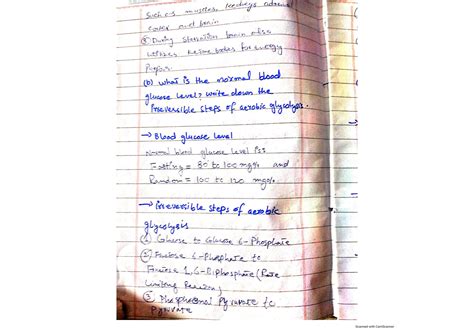 Such as muscles, kidneys adrenal
cortex and brain
③ During starvation brain also
utilises Ketone bodies for energy
Purpose.
(b) what is the normal blood
glucose level? write down the
irreversible steps of aerobic glycolysis.
→ Blood glucose level
Normal blood glucose level is:
Fasting = 80 to 100 mg% and
Random = 100 to 120 mg%.
→ irreversible steps of aerobic
glycolysis
① Glucose to Glucose 6-Phosphate
② Fructose 6-Phosphate to
Fructose 1,6-Diphosphate (Rate
Limiting Reaction)
③ Phosphoenol Pyruvate to
Pyruvate
Scanned with CamScanner